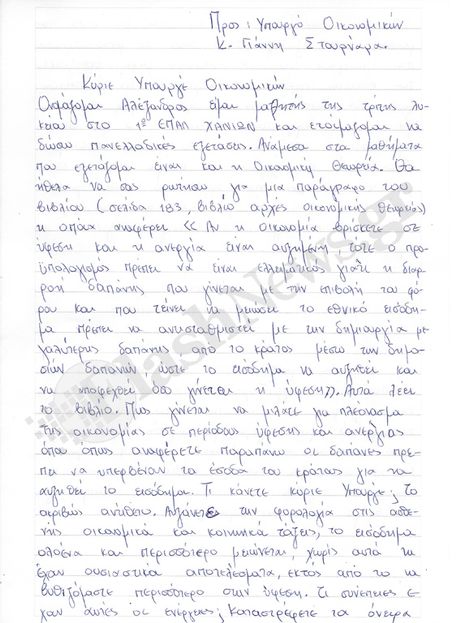 Προς: Υπουργό Οικονομικών
κ. Γιάννη Στουρνάρα.
Κύριε Υπουργέ Οικονομικών
Ονομάζομαι Αλέξανδρος είμαι μαθητής της τρίτης λυ-
κείου στο 1ο ΕΠΑΛ ΧΑΝΙΩΝ και ετοιμάζομαι να
δώσω πανελλαδικές εξετάσεις. Ανάμεσα στα μαθήματα
που εξετάζομαι είναι και η Οικονομική Θεωρία. Θα
ήθελα να σας ρωτήσω για μια παράγραφο του
βιβλίου (σελίδα 183, βιβλίο αρχές οικονομικής θεωρίας)
η οποία αναφέρει << Αν η οικονομία βρίσκετε σε
ύφεση και η ανεργία είναι αυξημένη τότε ο προ-
ϋπολογισμός πρέπει να είναι ελλειματικός γιατί η διαρ-
ροή δαπάνης που γίνεται με την επιβολή του φό-
ρου και που τείνει να μειώσει το εθνικό εισόδη-
μα πρέπει να αντισταθμιστεί με την δημιουργία με-
γαλύτερης δαπάνης από το κράτος μέσω των δημο-
σίων δαπανών, ώστε το εισόδημα να αυξηθεί και
να υποφευχθεί όσο γίνεται η ύφεση>>. Αυτά λέει
το βιβλίο. Πως γίνεται να μιλάτε για πλεόνασμα
της οικονομίας σε περίοδους ύφεσης και ανεργίας
όπου όπως αναφέρετε παραπάνω οι δαπάνες πρέ-
πει να υπερβαίναν τα έσοδα του κράτους για να
αυξηθεί το εισόδημα. Τι κάνετε κύριε Υπουργέ; το
ακριβώς αντίθετο. Αυξάνετε την φορολογία στις ασθε-
νής οικονομικά και κοινωνικά τάξεις, το εισόδημα
ολοένα και περισσότερο μειώνεται, χωρίς αυτά να
έχουν ουσιαστικά αποτελέσματα, εκτός από το να
βυθιζόμαστε περισσότερο στην ύφεση. Τι συνέπειες έ-
χουν αυτές οι ενέργειες; Καταστρέφετε τα όνειρα
flashnews.gr